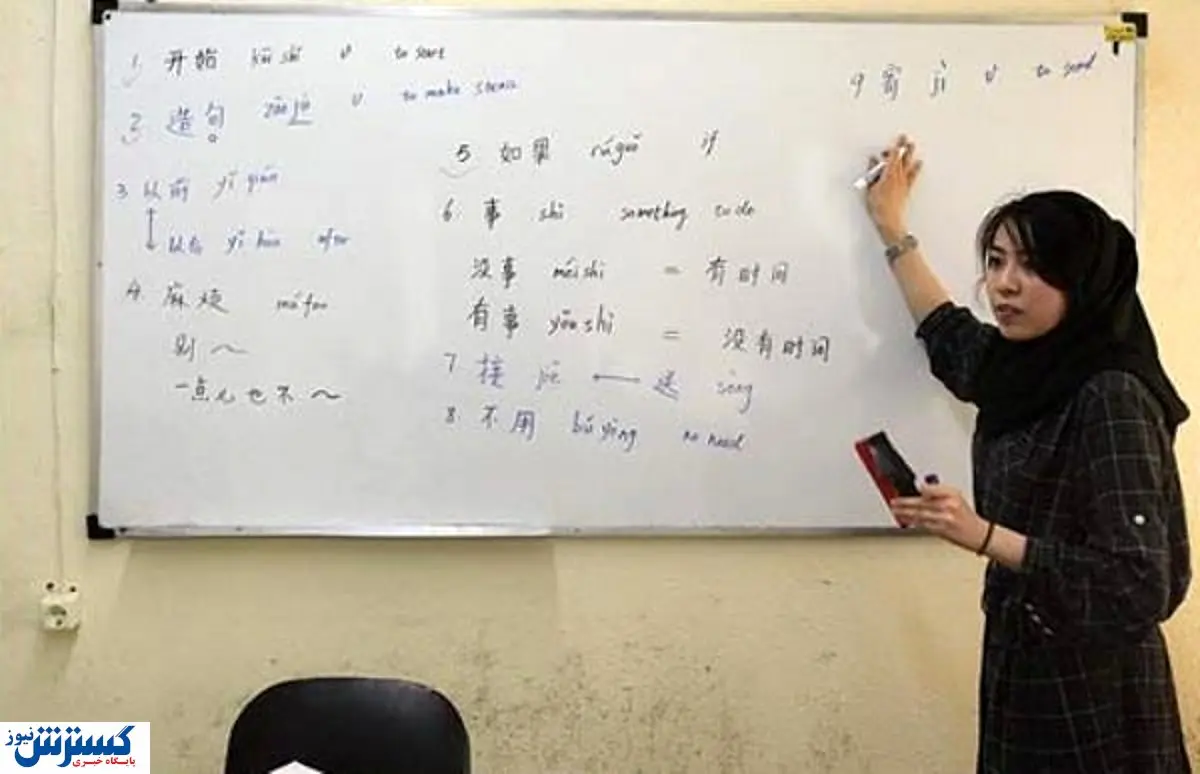 1. 开始 kāi shǐ v to start
2. 造句 zào jù v to make
3. 以前 yǐ qián
以后 yǐ hòu after
4. 麻烦 má fan
别~
一点儿也不~
5 如果 rú guǒ if
6. 事 shì something to do
没事 méi shì = 有时间
有事 yǒu shì = 没有时间
7 接 jiē ⟷ 送 sòng
8. 不用 bú yòng no need
9 寄 jì v to send
گسترش نیوز
پایگاه خبری